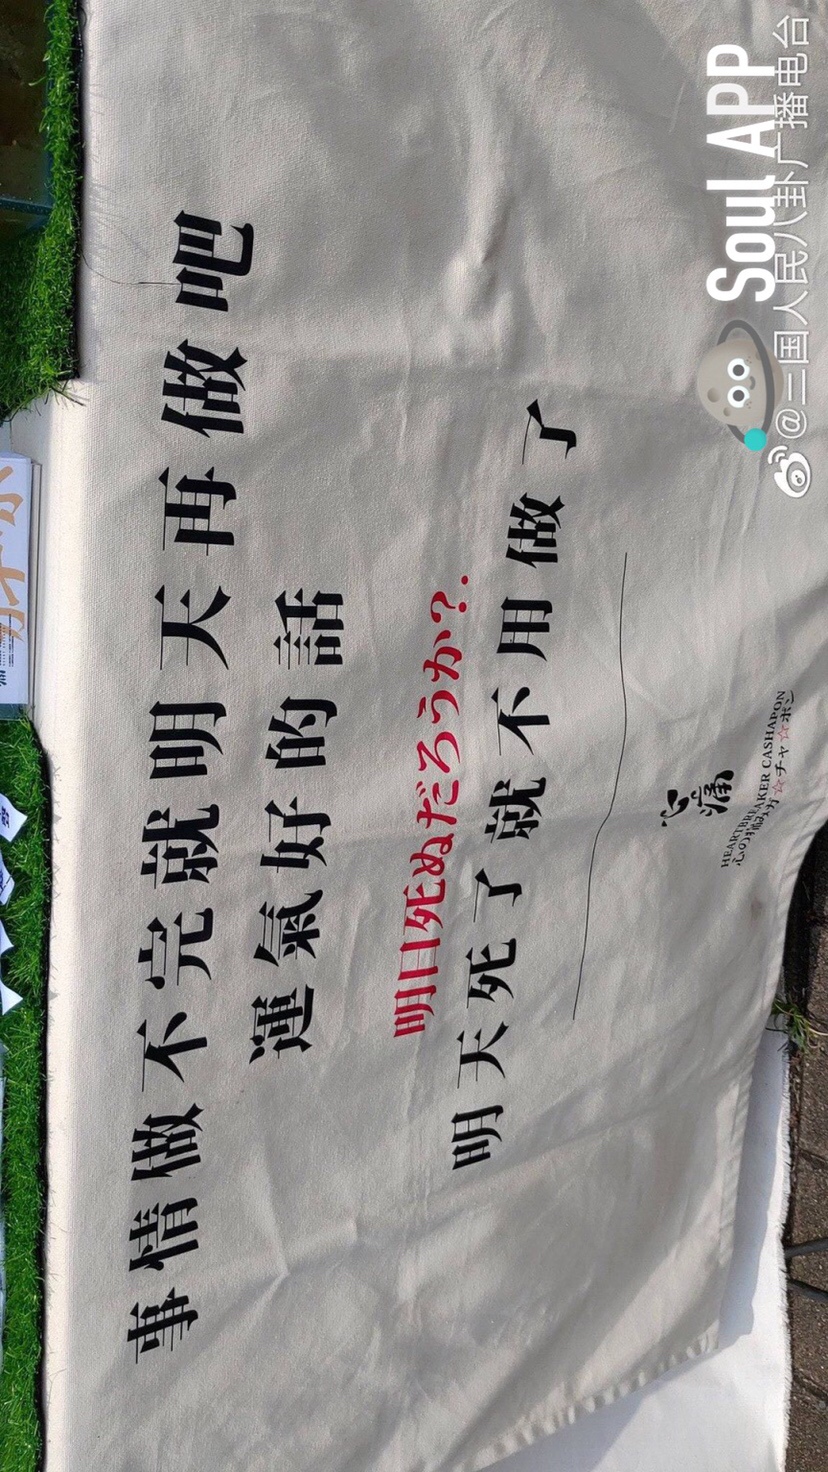 事情做不完就明天再做吧
運氣好的話
明日死ぬだろうか?.
明天死了就不用做了
心痛
HEARTBREAKER CASHAPON
心の痛み☆チャ☆ポン
Soul APP
@二国人民八卦广播电台